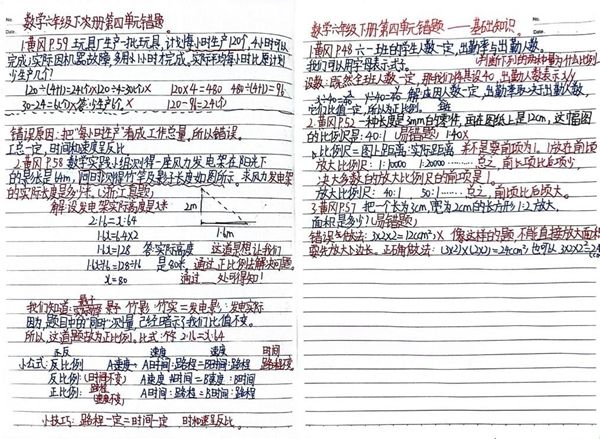 数学六年级下次册第四单元错题。
1.黄冈P.59 玩具厂生产一批玩具,计划每小时生产120个,4小时可以
完成,实际因机器故障,多用1小时才完成。实际平均每小时比原计划
少生产几个?
120÷(4+1)=24(个) 120÷4=30(个) 120×4=480 480÷(4+1)=96
30-24=6(个) 答:少生产6个。 120-96=24(个)
错误原因:把“每小时生产”看成工作总量。所以错误。
工总一定,时间和速度呈反比
2.黄冈P.58 数学实践小组测得一座风力发电架在阳光下
的影长是64m,同时测得竹竿及影子长度如图所示。求风力发电架
的实际长度是多少米。(浙江真题)
解:设发电架实际高度是x米
2m
2:1.6=x:64
1.6m
1.6x=64×2
1.6x=128 答:实际高度 这道思想让我们
1.6x÷1.6=128÷1.6 是80米。通过正比例法解决问题。
x=80 通过 处可得知!
我们知道: 竹影:竹实=发电影:发电实际
因为题目中的“同时”测量,已经暗示了我们比值不变。
所以这道题技为正比例。比式:2:1.6=x:64
正反 速度 速度 时间
小公式:反比例 A速度:A时间:路程=B时间:路程
反比例:(时间不变) A速度:A时间=B速度:B时间
正比例: A时间:路程=B时间:路程
小技巧:路程一定=时间一定 时和速呈反比。
数学六年级下册第四单元错题——基础知识。
1.黄冈P48 六一班的学生人数一定,出勤率与出勤人数。
我们可以用字母表示式子。(判断下列的两种量为什么比例)
设数:既然全班人数一定,那我们将其设40,出勤人数表示x/y
它们比值一定,所以为正比例。
2.黄冈P.52 一种长度是3mm的零件,画在图纸上是12cm,这幅图
的比例尺是:40:1 (易错题) 1:40×
比例尺=图上距离:实际距离 并不是要前项为1。
放大比例尺:1:1000 1:20000……总之,前项比后项少。
放大比例尺:40:1 50:1……总之,前项比后项大。
3.黄冈P57 把一个长为3cm,宽为2cm的长方形1:2放大,
面积是多少?(易错题)
错误做法:3×2×2=12(cm²)× 像这样的题,不能直接放大面积
要先放大边长。正确做法:(3×2)×(2×2)=24(cm²)